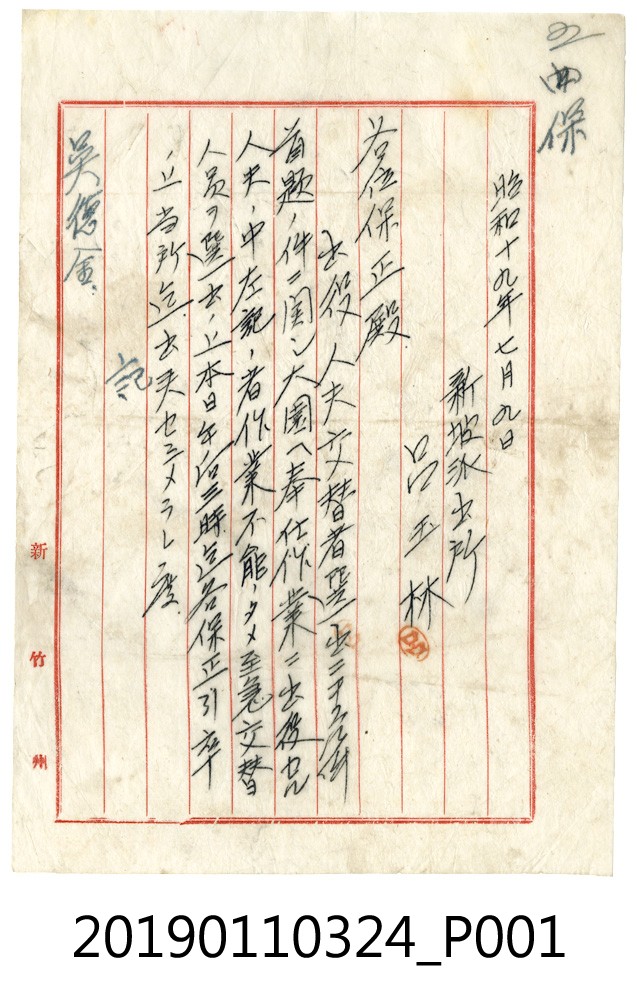 五甲保
昭和十九年七月九日
新坡派出所
呂玉林
呂
各位保正殿
出役人夫交替者選出ニ関スル件
首題ノ件ニ関シ大園ヘ奉仕作業ニ出役セル
人夫ノ中左記ノ者作業不能ノタメ至急交替
人員ヲ選出ノ上本日午后三時迄各保正引卒
ノ上当所迄出头セシメラレ度
記
吳德金
新竹州
20190110324_P001